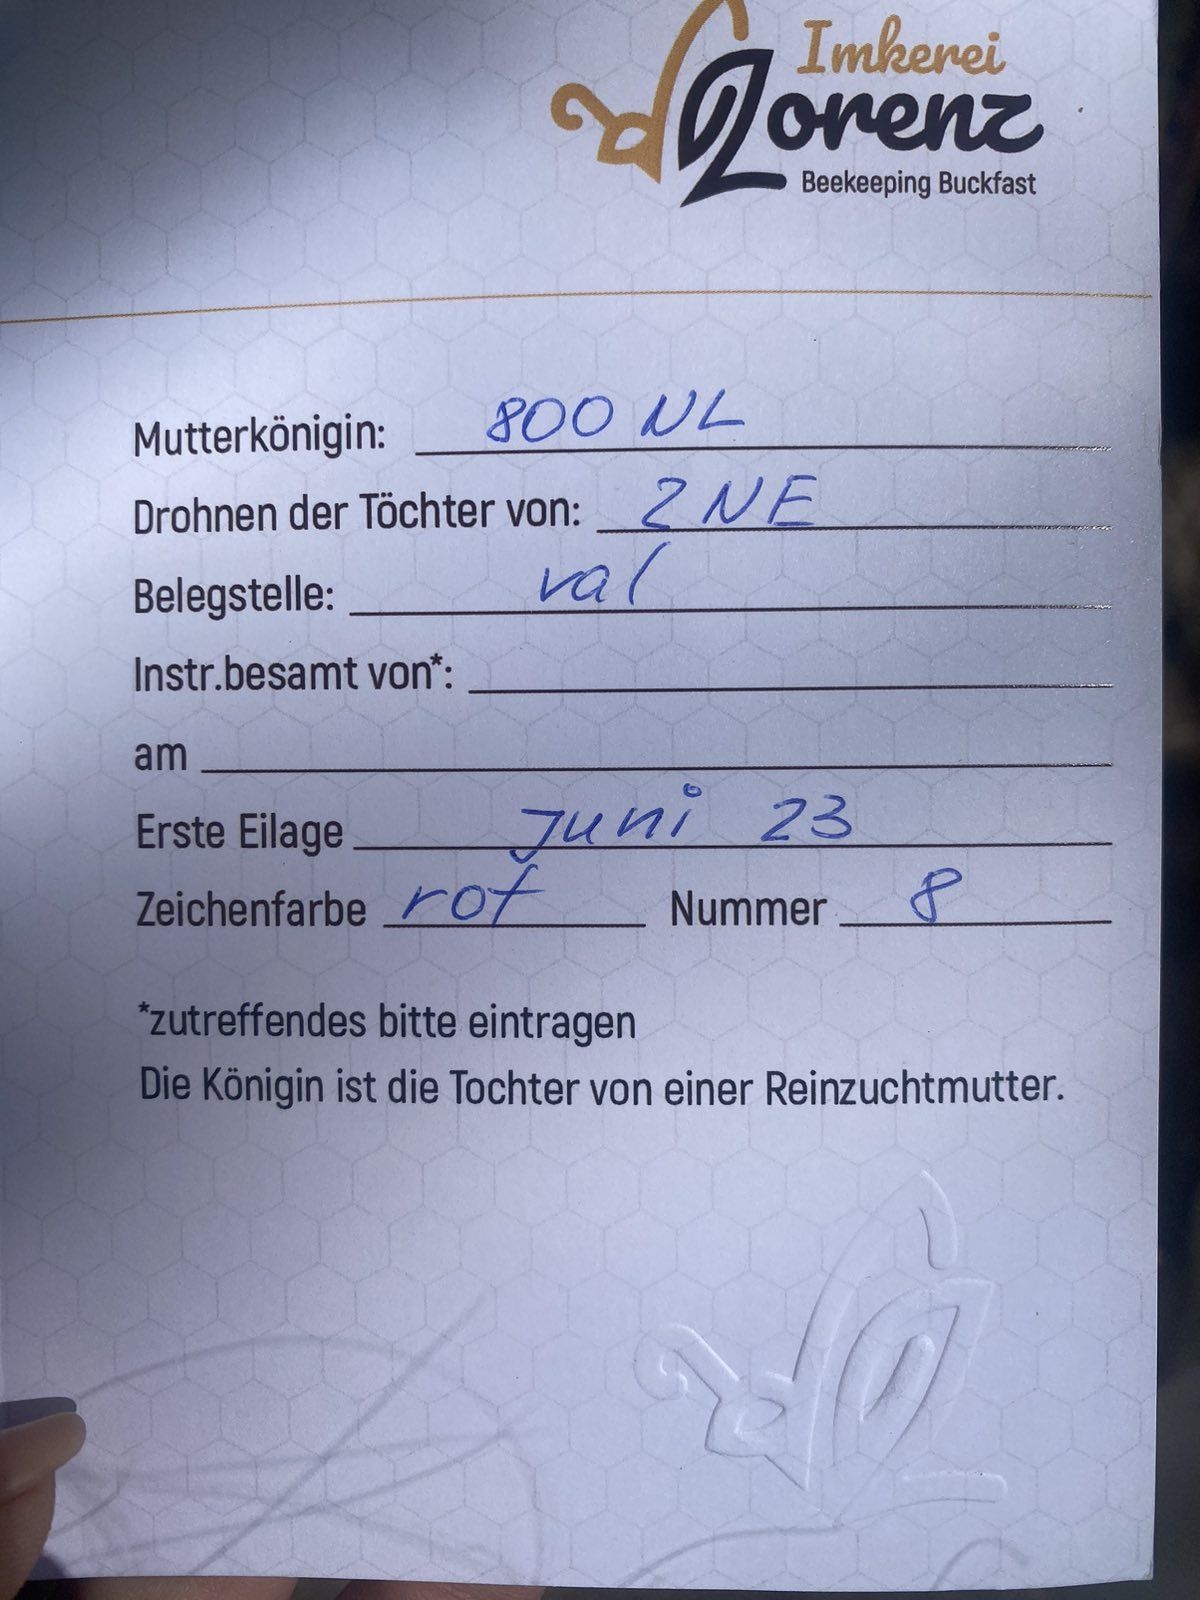 Imkerei
Lorenz
Beekeeping Buckfast
Mutterkönigin: 800 NL
Drohnen der Töchter von: 2 NE
Belegstelle: val
Instr.besamt von*:
am
Erste Eilage Juni 23
Zeichenfarbe rot Nummer 8
*zutreffendes bitte eintragen
Die Königin ist die Tochter von einer Reinzuchtmutter.